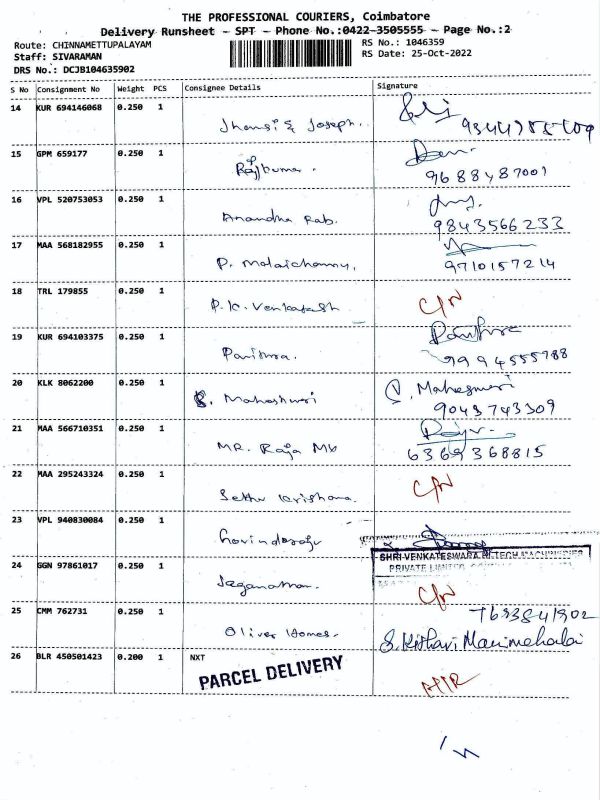 THE PROFESSIONAL COURIERS, Coimbatore
Delivery Runsheet - SPT - Phone No.:0422-3505555 - Page No.:2
Route: CHINNAMETTUPALAYAM RS No.: 1046359
Staff: SIVARAMAN RS Date: 25-Oct-2022
DRS No.: DCJB104635902
S No Consignment No Weight PCS Consignee Details Signature
14 KUR 694146068 0.250 1
Jhansi & Joseph.
15 GPM 659177 0.250 1
Rajkumar. 9688487001
16 VPL 520753053 0.250 1
Anandha Rab. 9843566233
17 MAA 568182955 0.250 1
P. Malaichamy, 9710157214
18 TRL 179855 0.250 1
P.K. Venkatash C/N
19 KUR 694103375 0.250 1
Pavithra. 9994555788
20 KLK 8062200 0.250 1 V. Maheswari
Maheshwri 9043743309
21 MAA 566710351 0.250 1
MR. Raja MV 6369368815
22 MAA 295243324 0.250 1
Sethu Krishana. C/N
23 VPL 940830084 0.250 1
Govindaraju
SHRI VENKATESWARA HITECH MACHINERIES
24 GGN 97861017 0.250 1 PRIVATE LIMITED
Jaganathan. C/N
25 CMM 762731 0.250 1
Oliver Homes.
26 BLR 450501423 0.200 1 NXT
PARCEL DELIVERY